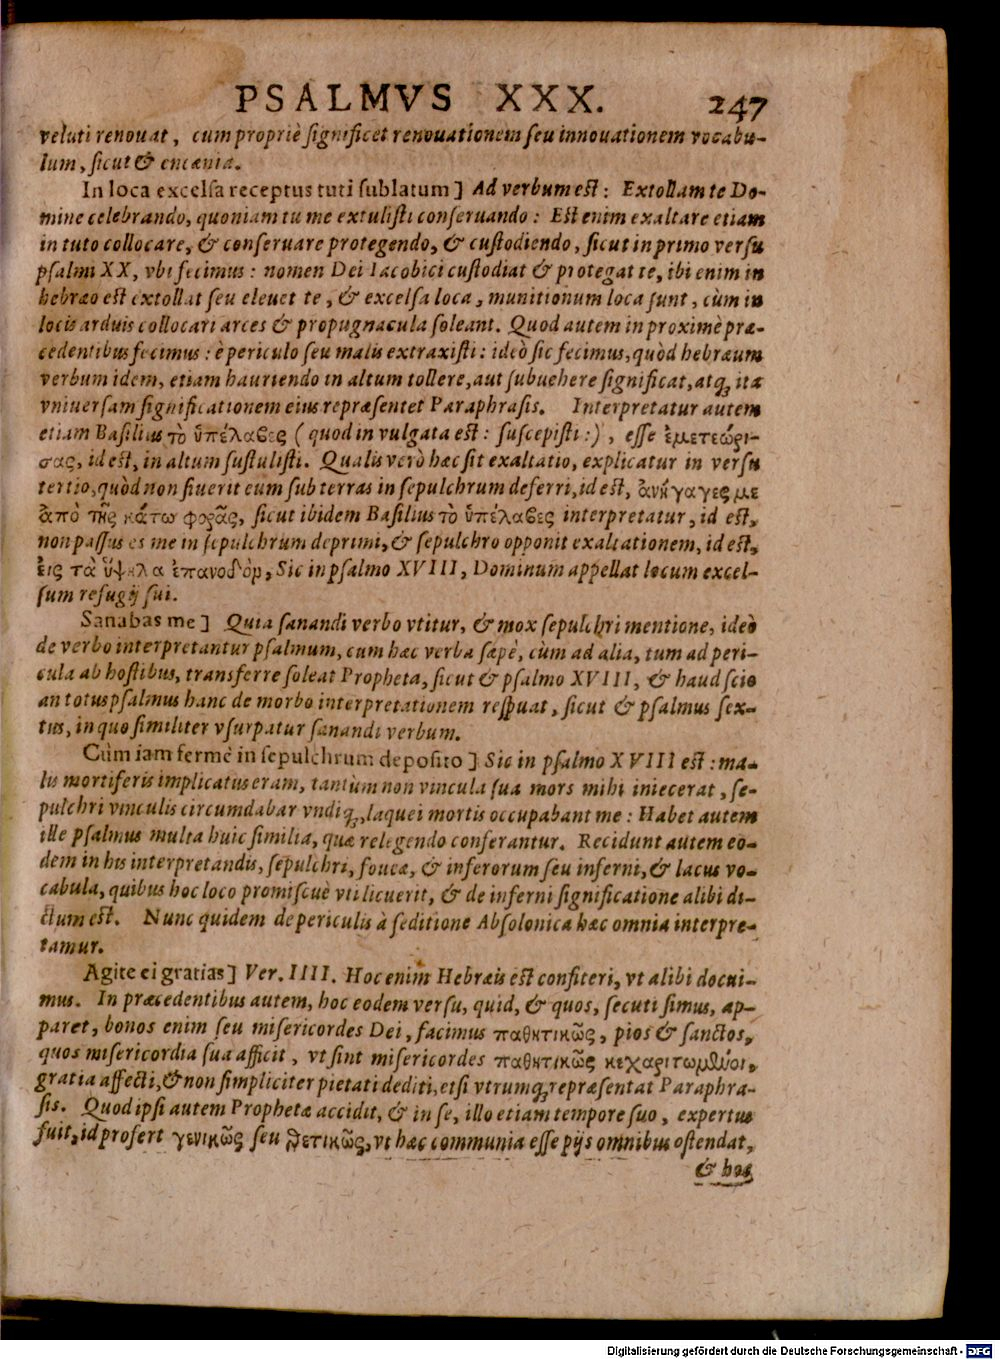 PSALMVS XXX. 247
veluti renouat, cum propriè ſignificet renouationem ſeu innouationem vocabu-
lum, ſicut & encænia.
In loca excelſa receptus tuti ſublatum] Ad verbum eſt: Extollam te Do-
mine celebrando, quoniam tu me extuliſti conſeruando: Eſt enim exaltare etiam
in tuto collocare, & conſeruare protegendo, & cuſtodiendo, ſicut in primo verſu
pſalmi XX, vbi fecimus: nomen Dei Iacobici cuſtodiat & protegat te, ibi enim in
hebræo eſt extollat ſeu eleuet te, & excelſa loca, munitionum loca ſunt, cùm in
locis arduis collocari arces & propugnacula ſoleant. Quod autem in proximè præ-
cedentibus fecimus: è periculo ſeu malis extraxiſti: ideò ſic fecimus, quòd hebræum
verbum idem, etiam hauriendo in altum tollere, aut ſubuehere ſignificat, atq; ita
vniuerſam ſignificationem eius repræſentet Paraphraſis. Interpretatur autem
etiam Baſilius τὸ ὑπέλαβες (quod in vulgata eſt: ſuſcepiſti:), eſſe ἐμετεώρι-
σας, id eſt, in altum ſuſtuliſti. Qualis verò hæc ſit exaltatio, explicatur in verſu
tertio, quòd non ſiuerit eum ſub terras in ſepulchrum deferri, id eſt, ἀνήγαγες με
ἀπὸ τῆς κάτω φορᾶς, ſicut ibidem Baſilius τὸ ὑπέλαβες interpretatur, id eſt,
non paſſus es me in ſepulchrum deprimi, & ſepulchro opponit exaltationem, id eſt,
εἰς τὰ ὕψηλα ἐπανοδὸμ, Sic in pſalmo XVIII, Dominum appellat locum excel-
ſum refugij ſui.
Sanabas me] Quia ſanandi verbo vtitur, & mox ſepulchri mentione, ideò
de verbo interpretantur pſalmum, cum hæc verba ſæpè, cùm ad alia, tum ad peri-
cula ab hoſtibus, transferre ſoleat Propheta, ſicut & pſalmo XVIII, & haud ſcio
an totus pſalmus hanc de morbo interpretationem reſpuat, ſicut & pſalmus ſex-
tus, in quo ſimiliter vſurpatur ſanandi verbum.
Cùm iam fermè in ſepulchrum depoſito] Sic in pſalmo XVIII eſt: ma-
lis mortiferis implicatus eram, tantùm non vincula ſua mors mihi iniecerat, ſe-
pulchri vinculis circumdabar vndiq;, laquei mortis occupabant me: Habet autem
ille pſalmus multa huic ſimilia, quæ relegendo conferantur. Recidunt autem eo-
dem in his interpretandis, ſepulchri, foueæ, & inferorum ſeu inferni, & lacus vo-
cabula, quibus hoc loco promiſcuè vti licuerit, & de inferni ſignificatione alibi di-
ctum eſt. Nunc quidem de periculis à ſeditione Abſolonica hæc omnia interpre-
tamur.
Agite ei gratias] Ver. IIII. Hoc enim Hebræis eſt confiteri, vt alibi docui-
mus. In præcedentibus autem, hoc eodem verſu, quid, & quos, ſecuti ſimus, ap-
paret, bonos enim ſeu miſericordes Dei, facimus παθητικῶς, pios & ſanctos,
quos miſericordia ſua afficit, vt ſint miſericordes παθητικῶς κεχαριτωμένοι,
gratia affecti, & non ſimpliciter pietati dediti, etſi vtrumq; repræſentat Paraphra-
ſis. Quod ipſi autem Prophetæ accidit, & in ſe, illo etiam tempore ſuo, expertus
fuit, id profert γενικῶς ſeu θετικῶς, vt hæc communia eſſe pijs omnibus oſtendat,
& hos
Digitalisierung gefördert durch die Deutsche Forschungsgemeinschaft - DFG